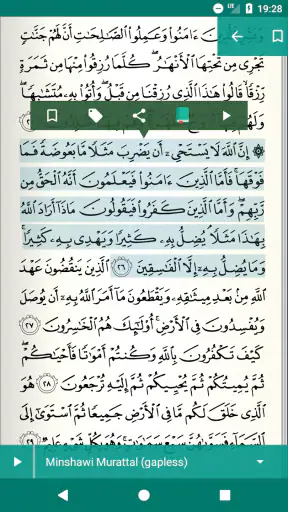 19:28
وَبَشِّرِ الَّذِينَ ءَامَنُوا وَعَمِلُوا الصَّالِحَاتِ أَنَّ لَهُمْ جَنَّاتٍ
تَجْرِي مِن تَحْتِهَا الْأَنْهَارُ كُلَّمَا رُزِقُوا مِنْهَا مِن ثَمَرَةٍ
رِّزْقًا قَالُوا هَٰذَا الَّذِي رُزِقْنَا مِن قَبْلُ وَأُتُوا بِهِ مُتَشَابِهًا
وَلَهُمْ
۞ إِنَّ اللَّهَ لَا يَسْتَحْيِي أَن يَضْرِبَ مَثَلًا مَّا بَعُوضَةً فَمَا
فَوْقَهَا فَأَمَّا الَّذِينَ ءَامَنُوا فَيَعْلَمُونَ أَنَّهُ الْحَقُّ مِن
رَّبِّهِمْ وَأَمَّا الَّذِينَ كَفَرُوا فَيَقُولُونَ مَاذَا أَرَادَ اللَّهُ
بِهَٰذَا مَثَلًا يُضِلُّ بِهِ كَثِيرًا وَيَهْدِي بِهِ كَثِيرًا
وَمَا يُضِلُّ بِهِ إِلَّا الْفَاسِقِينَ ٢٦ الَّذِينَ يَنقُضُونَ عَهْدَ
اللَّهِ مِن بَعْدِ مِيثَاقِهِ وَيَقْطَعُونَ مَا أَمَرَ اللَّهُ بِهِ أَن يُوصَلَ
وَيُفْسِدُونَ فِي الْأَرْضِ أُولَٰئِكَ هُمُ الْخَاسِرُونَ ٢٧
كَيْفَ تَكْفُرُونَ بِاللَّهِ وَكُنتُمْ أَمْوَاتًا فَأَحْيَاكُمْ
ثُمَّ يُمِيتُكُمْ ثُمَّ يُحْيِيكُمْ ثُمَّ إِلَيْهِ تُرْجَعُونَ ٢٨ هُوَ
الَّذِي خَلَقَ لَكُم مَّا فِي الْأَرْضِ جَمِيعًا ثُمَّ اسْتَوَىٰ إِلَى
السَّمَاءِ فَسَوَّاهُنَّ سَبْعَ سَمَاوَاتٍ وَهُوَ بِكُلِّ شَيْءٍ عَلِيمٌ ٢٩
Minshawi Murattal (gapless)